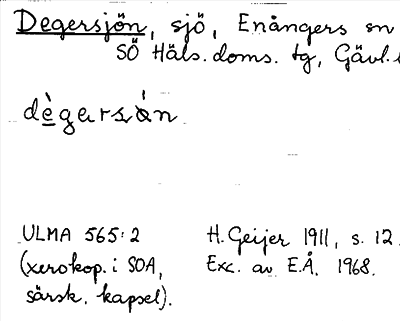 Degersjön, sjö, Enångers sn
SÖ Häls. doms. tg, Gävl.
dègarsàn
ULMA 565:2
(xerokop. i SOA,
särsk. kapsel).
H. Geijer 1911, s. 12
Exc. av E.Å. 1968.